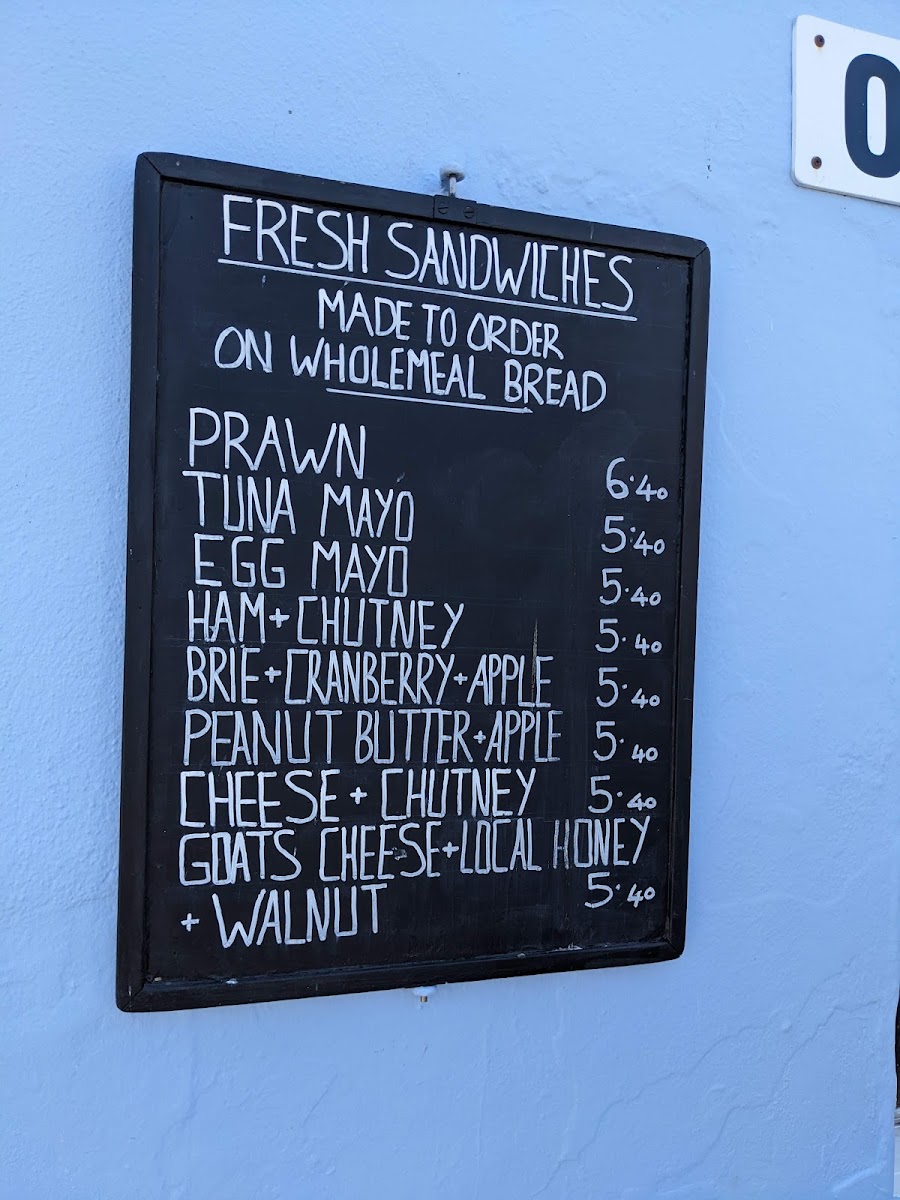 O
FRESH SANDWICHES
MADE TO ORDER
ON WHOLEMEAL BREAD
PRAWN 6.40
TUNA MAYO 5.40
EGG MAYO 5.40
HAM + CHUTNEY 5.40
BRIE + CRANBERRY + APPLE 5.40
PEANUT BUTTER + APPLE 5.40
CHEESE + CHUTNEY 5.40
GOATS CHEESE + LOCAL HONEY
+ WALNUT 5.40